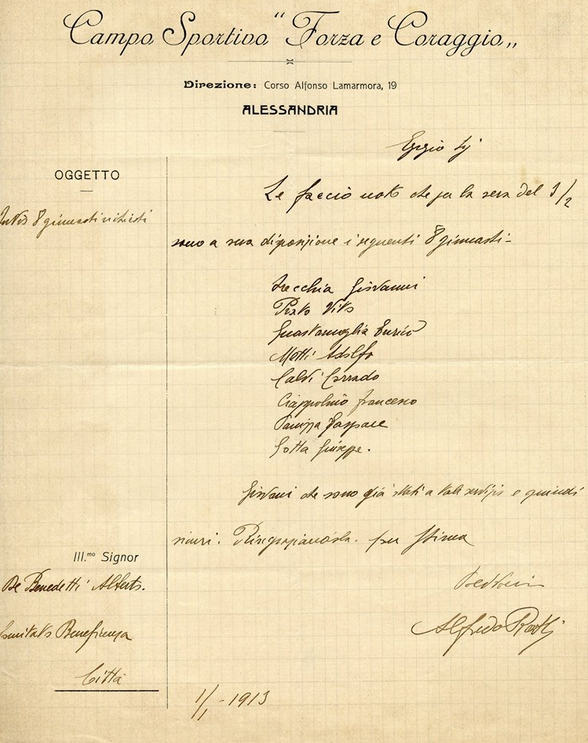 Campo Sportivo "Forza e Coraggio„
Direzione: Corso Alfonso Lamarmora, 19
ALESSANDRIA
Egrgio Sig
OGGETTO
Invio 8 ginnasti richiesti
Le faccio noto che per la sera del 1/2
sono a sua disposizione i seguenti 8 ginnasti -
Giovanni
Vito
Guastavuglia Enrico
Motti Adolfo
Calvi Corrado
Francesco
Gaspare
Gotta Giuseppe.
Giovani che sono già stati a tale servizio e quindi
sicuri. Ringraziandola. per stima
Ill.mo Signor
De Benedetti Alberto.
Comitato Beneficenza
Città
Alfredo
1/1 - 1913